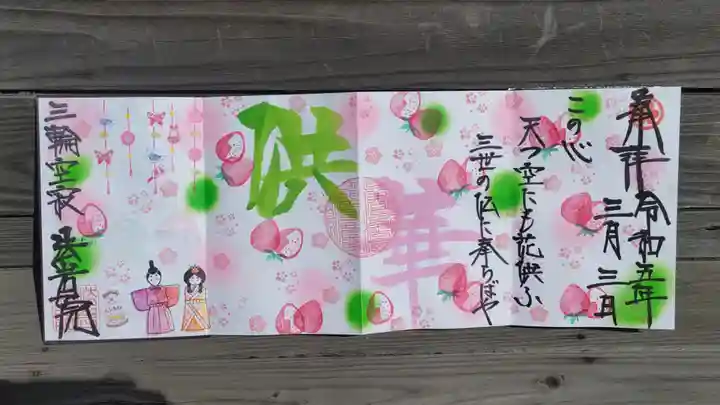 奉拝
令和五年
三月三日
この心
天つ空にも花供ふ
三世の仏に奉らばや
供
華
三輪空寂
法音院